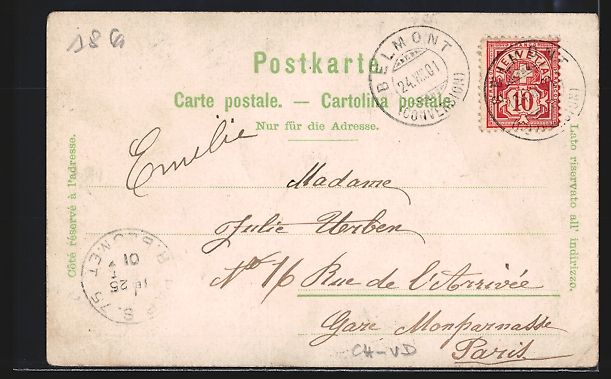 18 G
Postkarte
Carte postale. — Cartolina postale.
Nur für die Adresse.
Côté réservé à l'adresse.
Lato riservato all' indirizzo.
BELMONT
24.VII.01
(CONVERSION)
HELVETIA
10
BELMONT
Emilie
Madame
Julie Urben
No 16 Rue de l'Arrivée
Gare Monparnasse
Paris
CH-VD
PARIS
75
R. BLOMET
25
01